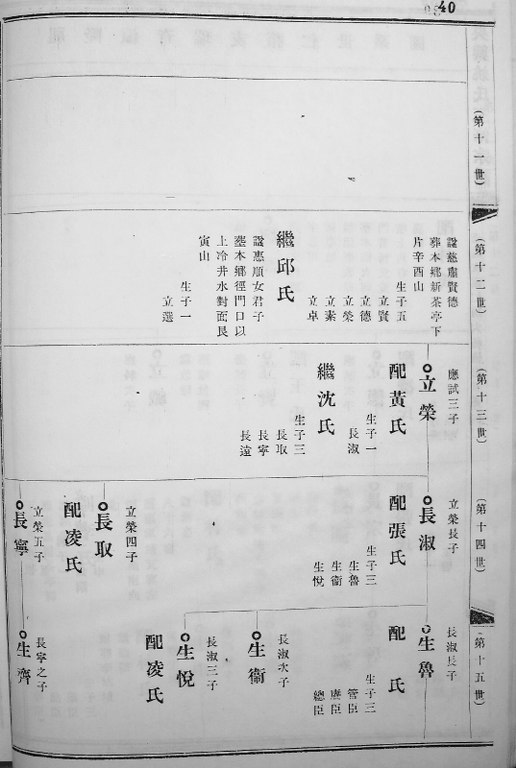 40
(第十一世)
(第十二世)
諡慈肅賢德
葬本鄉新茶亭下
片辛酉山
生子五
立賢
立德
立榮
立素
立卓
繼邱氏
諡惠順女君子
墓本鄉徑門口以
上冷井水對面艮
寅山
生子一
立選
(第十三世)
應試三子
立榮
配黃氏
生子一
長淑
繼沈氏
生子三
長取
長寧
長遠
(第十四世)
立榮長子
長淑
配張氏
生子三
生魯
生衞
生悅
立榮四子
長取
配凌氏
立榮五子
長寧
(第十五世)
長淑長子
生魯
配 氏
生子三
管臣
賡臣
總臣
長淑次子
生衞
長淑三子
生悅
配凌氏
長寧之子
生濟